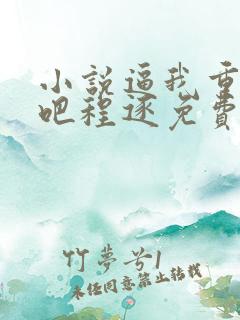 小說逼我重
吧程逐免費
竹夢兮1
未经同意禁止转载